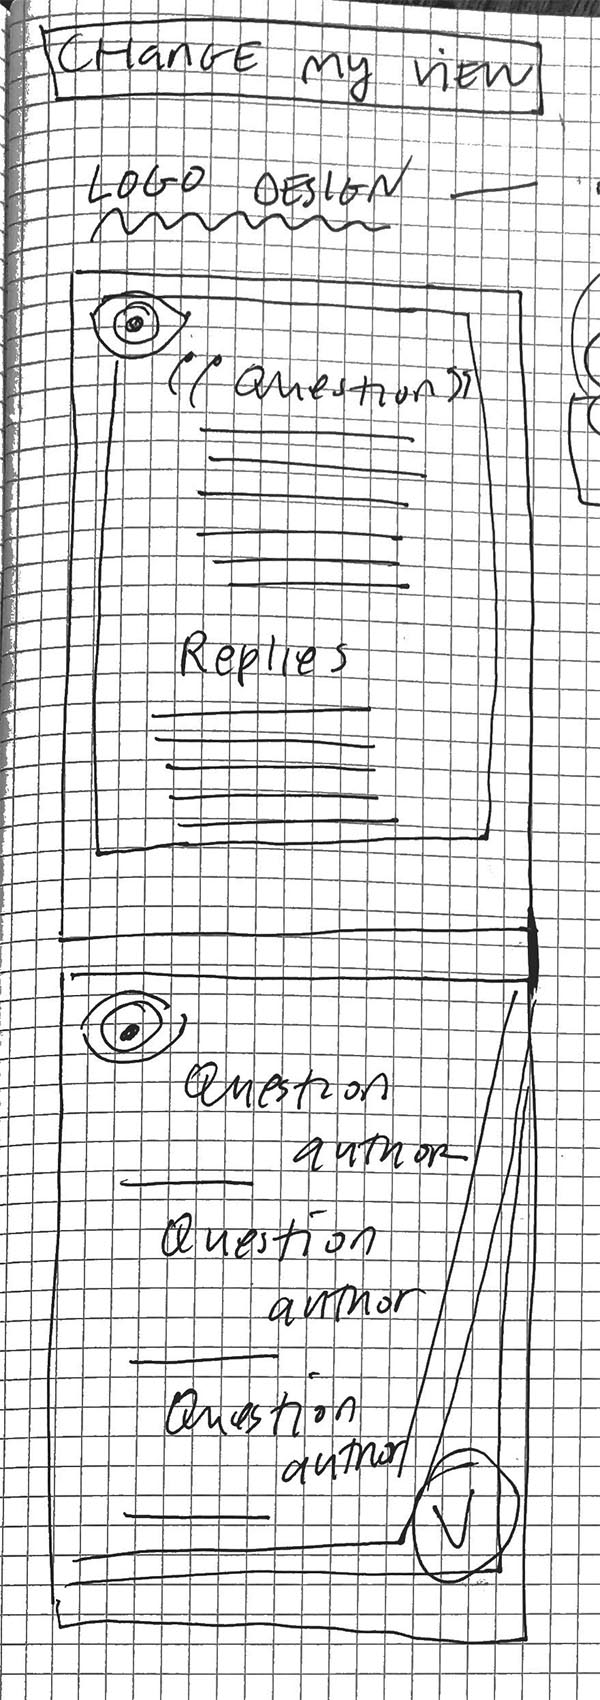 CHANGE MY VIEW
LOGO DESIGN —
"Question"
Replies
Question
author
Question
author
Question
author
V